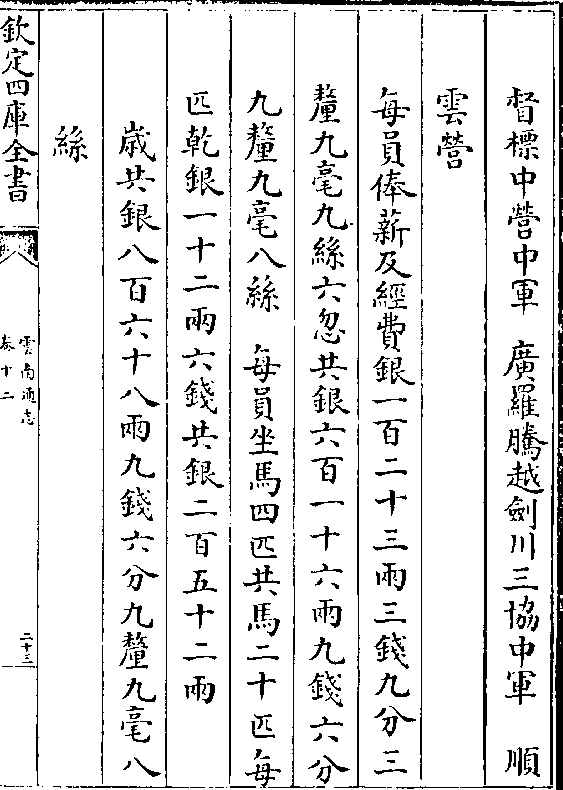 督標中營中軍　廣羅騰越劍川三協中軍　順
雲營
每員俸薪及經費銀一百二十三兩三錢九分三
釐九毫九絲六忽共銀六百一十六兩九錢六分
九釐九毫八絲　每員坐馬四匹共馬二十匹每
匹乾銀一十二兩六錢共銀二百五十二兩
歳共銀八百六十八兩九錢六分九釐九毫八
絲
欽定四庫全書
雲南通志
卷十二
二十三